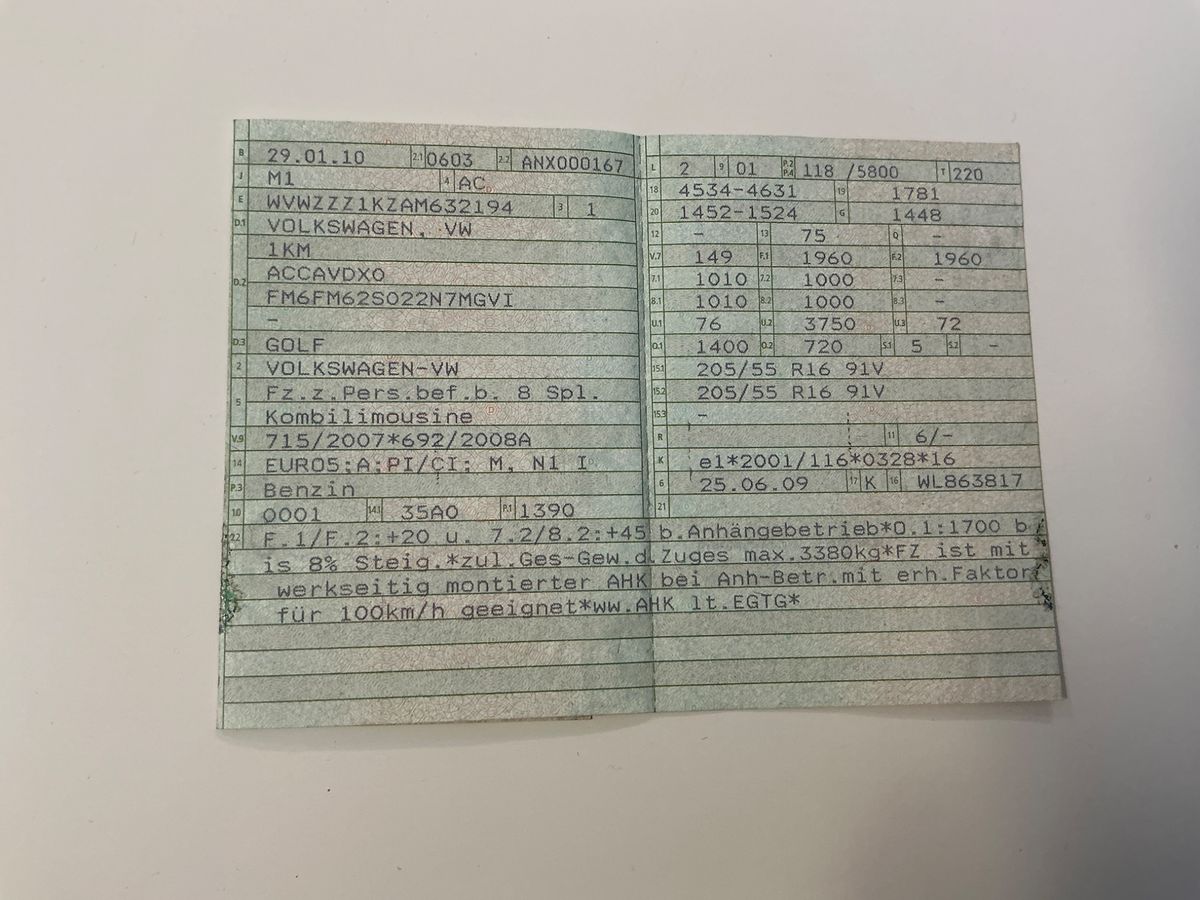 B 29.01.10 2.1 0603 2.2 ANX000167
J M1 4 AC
E WVWZZZ1KZAM632194 3 1
D.1 VOLKSWAGEN, VW
1KM
D.2 ACCAVDX0
FM6FM62S022N7MGVI
–
D.3 GOLF
2 VOLKSWAGEN-VW
5 Fz.z.Pers.bef.b. 8 Spl.
Kombilimousine
V.9 715/2007*692/2008A
14 EURO5;A;PI/CI; M, N1 I
P.3 Benzin
10 0001 14.1 35A0 P.1 1390
L 2 9 01 P.2 P.4 118 /5800 T 220
18 4534-4631 19 1781
20 1452-1524 G 1448
12 – 13 75 Q –
V.7 149 F.1 1960 F.2 1960
7.1 1010 7.2 1000 7.3 –
8.1 1010 8.2 1000 8.3 –
U.1 76 U.2 3750 U.3 72
O.1 1400 O.2 720 S.1 5 S.2 –
15.1 205/55 R16 91V
15.2 205/55 R16 91V
15.3 –
R 11 6/-
K e1*2001/116*0328*16
6 25.06.09 17 K 16 WL863817
21
22 F.1/F.2:+20 u. 7.2/8.2:+45 b.Anhängebetrieb*O.1:1700 b
is 8% Steig.*zul.Ges-Gew.d.Zuges max.3380kg*FZ ist mit
werkseitig montierter AHK bei Anh-Betr.mit erh.Faktor
für 100km/h geeignet*ww.AHK lt.EGTG*